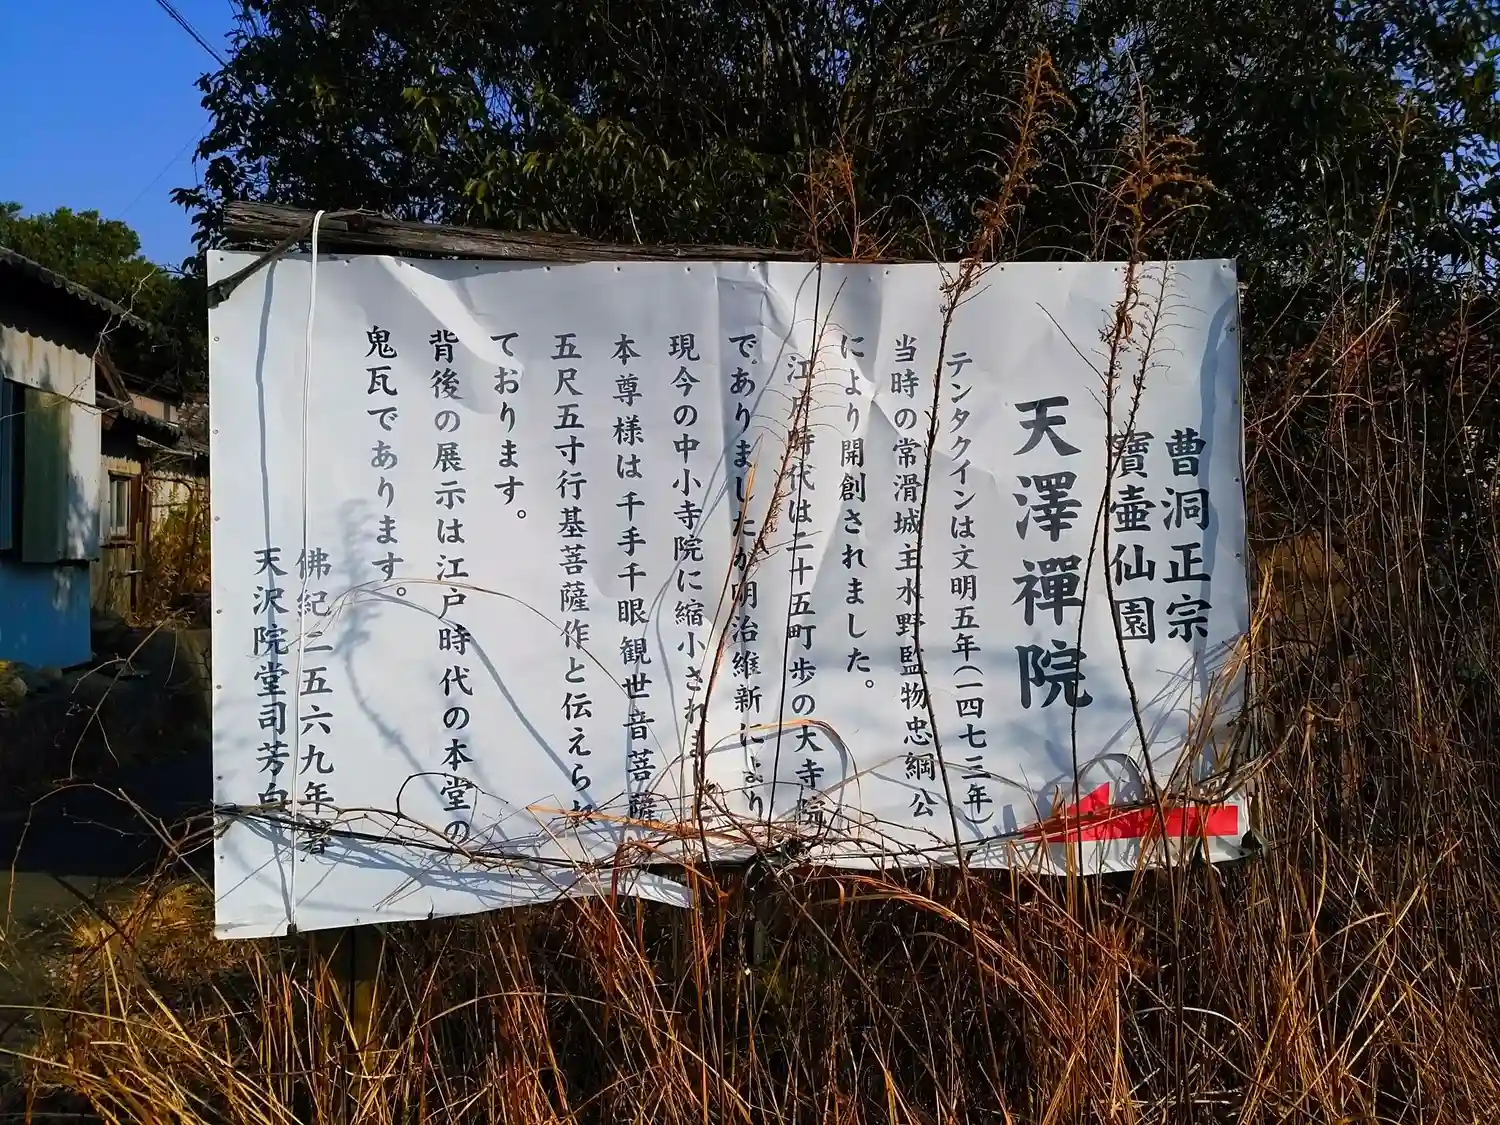 曹洞正宗
寶壺仙園
天澤禪院
テンタクインは文明五年(一四七三年)
当時の常滑城主水野監物忠綱公
により開創されました。
江戸時代は二十五町歩の大寺院
でありましたが明治維新により
現今の中小寺院に縮小されま
本尊様は千手千眼観世音菩薩
五尺五寸行基菩薩作と伝えられ
ております。
背後の展示は江戸時代の本堂の
鬼瓦であります。
佛紀二五六九年春
天沢院堂司芳白